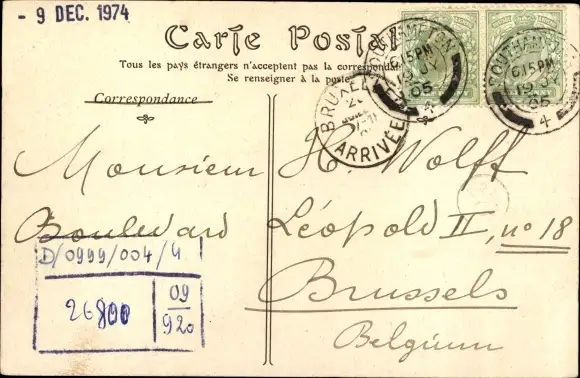 - 9 DEC. 1974
Carte Postale
Tous les pays étrangers n'acceptent pas la correspondance
Se renseigner à la poste
Correspondance
SOUTHAMPTON
6 15 PM
19 JY
05
4
SOUTHAMPTON
6 15 PM
19 JY
05
4
BRUXELLES
ARRIVÉE
6
Monsieur H. Wolff
Boulevard Léopold II, nº 18
Brussels
Belgium
D/0999/004/4
26800
09
920